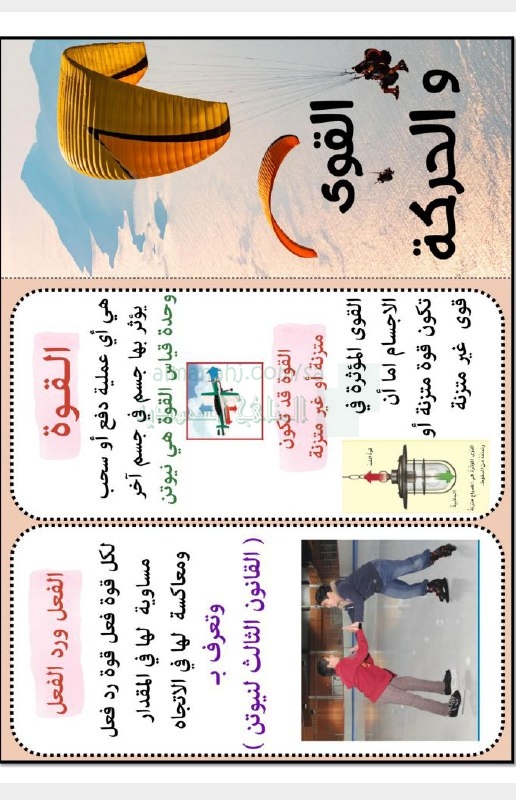 القوى
و الحركة
القوة
هي أي عملية دفع أو سحب
يؤثر بها جسم في جسم آخر
وحدة قياس القوة هي نيوتن
القوة قد تكون
متزنة أو غير متزنة
القوى المؤثرة في
الاجسام اما أن
تكون قوة متزنة أو
قوى غير متزنة
قوة الشد
الجاذبية
القوى المؤثرة في المصباح متزنة
وتمنعه من السقوط.
الفعل ورد الفعل
لكل قوة فعل قوة رد فعل
مساوية لها في المقدار
ومعاكسة لها في الاتجاه
وتعرف بـ
( القانون الثالث لنيوتن )
almanahj.com/sa